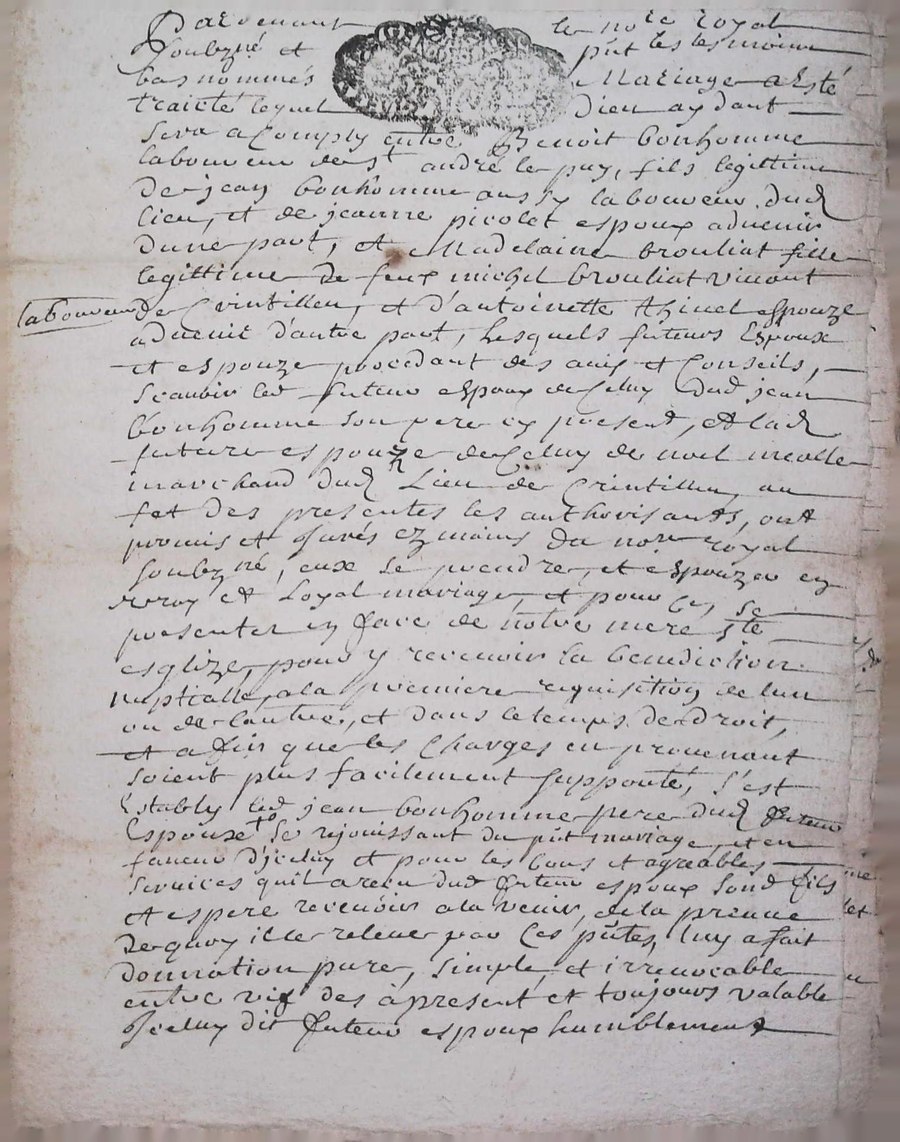 Pardevant le no.re royal
soubzné et p̃nt les tesmoins
bas nommés Mariage a Esté
traicté lequel Dieu aydant
sera acomply entre Benoit bonhomme
laboureur de S.t andré le puy, fils legittime
De jean bonhomme aussy laboureur dud
lieu, et de jeanne picolet espoux advenir
Dune part, et Madelaine brouliat fille
legittime De feux michel brouliat vivant
laboureur de Crintilleu, et d'antoinette thinel espouze
advenir d'autre part, lesquels futurs Espoux
et espouze procedant des avis et Conseils,
scavoir led futeur espoux de Celuy dud jean
bonhomme son pere cy present, et lad
future espouze de Celuy de noel micolle
marchand dud Lieu de Crintilleu, au
fet des presentes les authorisants, ont
promis et jurés ez mains du no.re royal
soubzné, eux se prendre, et espouzer en
vray et Loyal mariage, et pour ce, se
presenter en face de notre mere s.te
esglize, pour y recevoir la benediction
nuptialle, a la premiere requisition de lun
ou de lautre, et dans le temps de droit,
et afin que les Charges en provenant
soient plus facilement supporté, s'est
Estably led jean bonhomme pere dud futeur
Espoux se rejouissant du p̃nt mariage, et en
faveur D'jceluy et pour les bons et agreables
services quil a receu dud futeur espoux sond fils
et espere recevoir a la venir, de la preuve
De quoy il le releve par Ces p̃ntes, luy a fait
donnation pure, simple, et irrevocable
entre vif des à present et toujours valable
Jceluy dit futeur espoux humblement